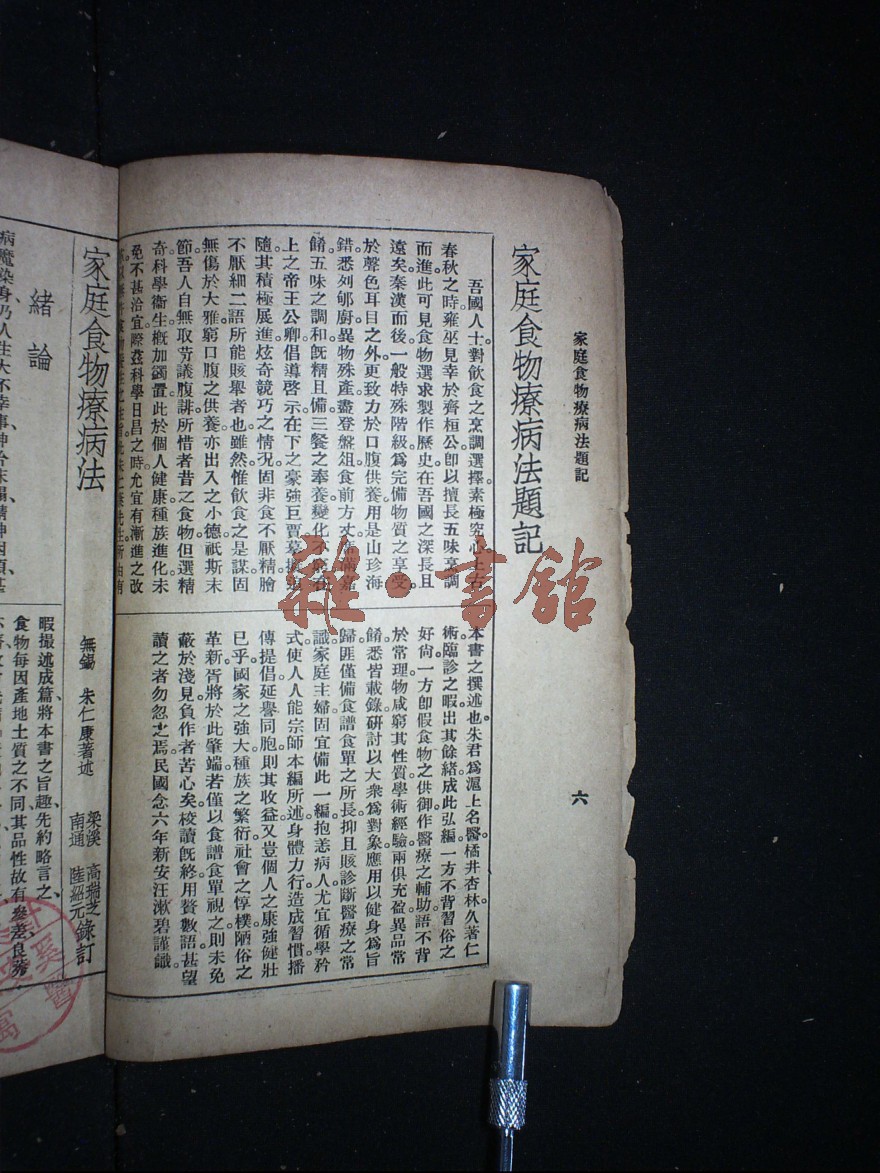 家庭食物療病法題記
六
家庭食物療病法題記
吾國人士對飲食之烹調選擇素極究心上古
春秋之時雍巫見幸於齊桓公卽以擅長五味烹調
而進此可見食物選求製作歷史在吾國之深長且
遠矣。秦漢而後。一般特殊階級爲完備物質之享受。
於聲色耳目之外。更致力於口腹供養。用是山珍海
錯。悉列郇廚。異物殊產。盡登盤俎。食前方丈。
餚。五味之調和。旣精且備。三餐之奉養。變化不
上之帝王公卿。倡導啓示。在下之豪強巨賈。
隨其積極展進。炫奇競巧之情况。固非食不厭精膾
不厭細二語所能賅舉者也。雖然惟飲食之是謀。固
無傷於大雅。窮口腹之供養。亦出入之小德。祇斯末
節。吾人自無取苛議腹誹。所惜者昔之食物。但選精
奇。科學衞生。槪加蠲置。此於個人健康種族進化。未
免不甚洽宜。際茲科學日昌之時。允宜有漸進之改
本書之撰述也。朱君爲滬上名醫。橘井杏林。久著仁
術。臨診之暇。出其餘緒。成此弘編。一方不背習俗之
好尙。一方卽假食物之供御。作醫療之輔助。語不背
於常理。物咸窮其性質。學術經驗。兩俱充盈。異品常
餚。悉皆載錄。研討以大衆爲對象。應用以健身爲旨
歸。匪僅備食譜食單之所長。抑且賅診斷醫療之常
識。家庭主婦。固宜備此一編。抱恙病人。尤宜循學矜
式。使人人能宗師本編所述。身體力行。造成習慣。播
傳提倡。延譽同胞。則其收益。又豈個人之康強健壯
已乎。國家之強大。種族之繁衍。社會之惇樸。陋俗之
革新。胥將於此肇端。若僅以食譜食單視之。則未免
蔽於淺見。負作者苦心矣。校讀旣終。用贅數語。甚望
讀之者勿忽之焉。民國念六年新安汪漱碧謹識。
家庭食物療病法
無錫 朱仁康著述
梁溪 高瑞芝
南通 陸紹元 錄訂
緒論
病魔染身、乃人生大不幸事、
暇撮述成篇、將本書之旨趣、先約略言之、
食物每因產地土質之不同、其品性故有參差、良莠
雜·書館